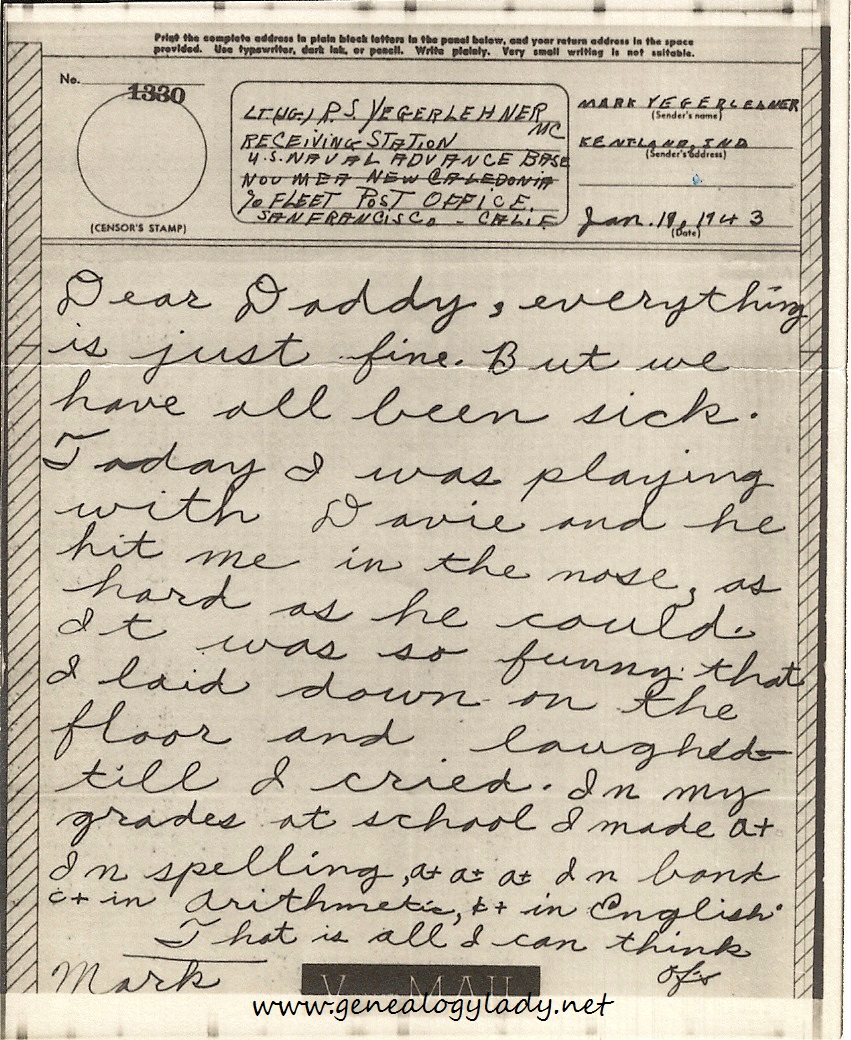 Print the complete address in plain block letters in the panel below, and your return address in the space
provided. Use typewriter, dark ink, or pencil. Write plainly. Very small writing is not suitable.
No.
1330
(CENSOR'S STAMP)
LT(JG) P.S. YEGERLEHNER
MC
RECEIVING STATION
U.S. NAVAL ADVANCE BASE
NOUMEA NEW CALEDONIA
% FLEET POST OFFICE.
SANFRANCISCO - CALIF
MARK YEGERLEHNER
(Sender's name)
KENTLAND, IND
(Sender's address)
Jan. 19, 1943
(Date)
Dear Daddy, everything
is just fine. But we
have all been sick.
Today I was playing
with Davie and he
hit me in the nose, as
hard as he could.
It was so funny that
I laid down on the
floor and laughed
till I cried. In my
grades at school I made a+
In spelling, a+ a± a± In band
c+ in arithmetic, b+ in English.
That is all I can think
of
Mark
V--MAIL
www.genealogylady.net